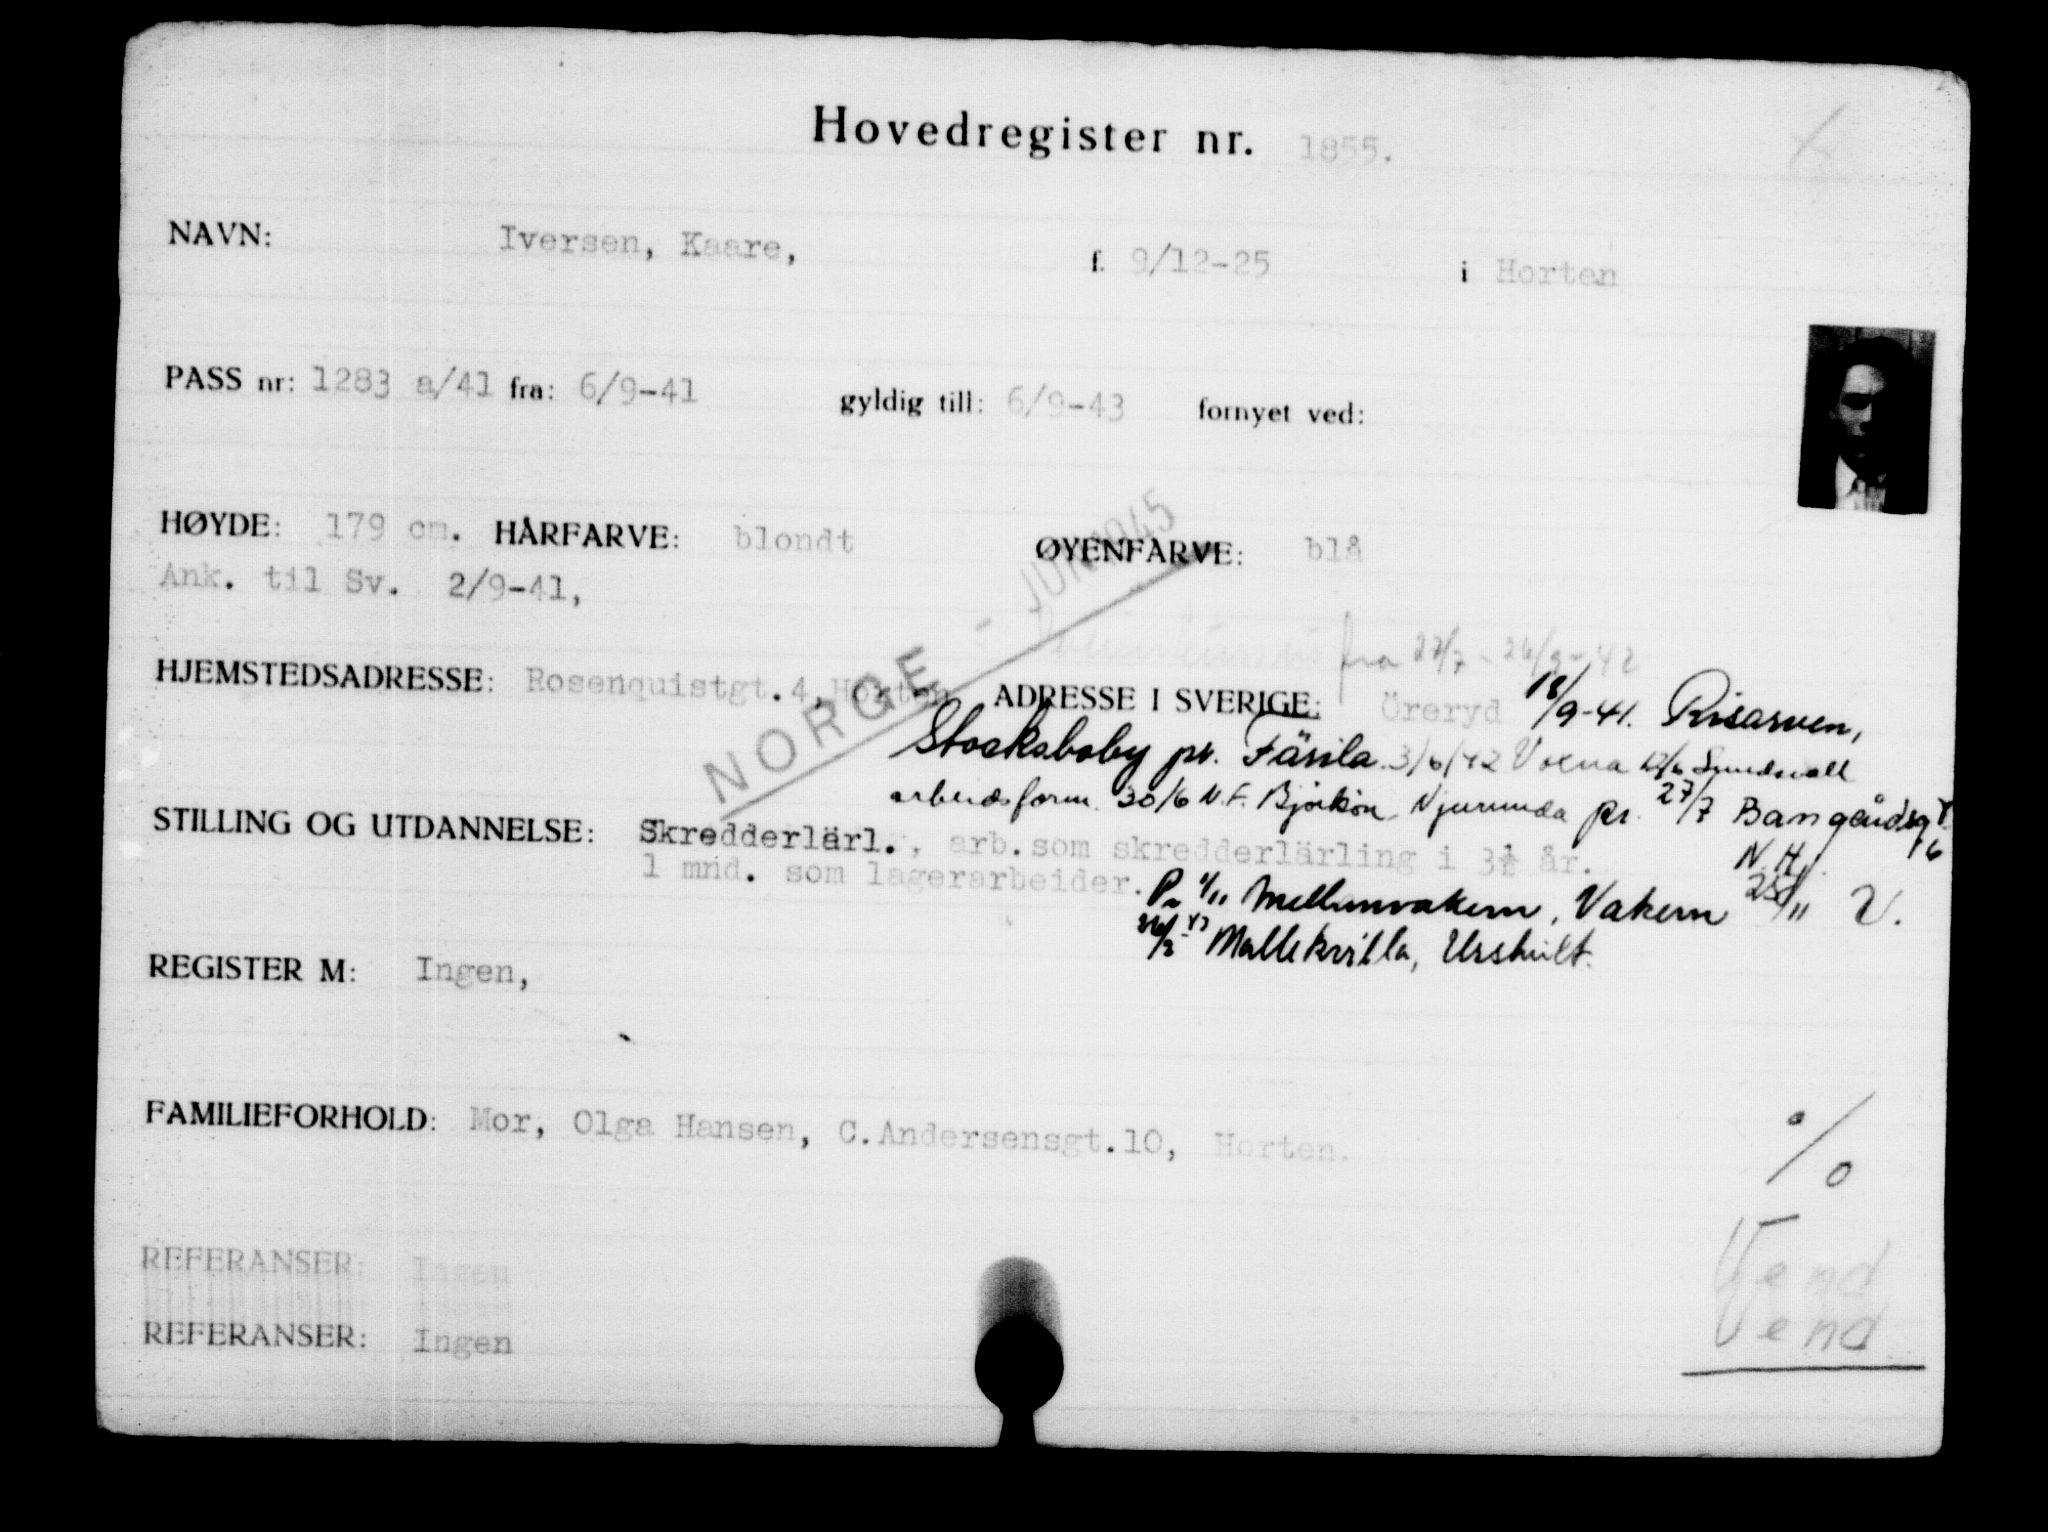 Hovedregister nr. 1855.
NAVN: Iversen, Kaare, f. 9/12-25 i Horten
PASS nr: 1283 a/41 fra: 6/9-41 gyldig till: 6/9-43 fornyet ved:
HØYDE: 179 cm. HÅRFARVE: blondt ØYENFARVE: blå
Ank. til Sv. 2/9-41,
NORGE - JUNI 1945
fra 27/7 - 26/9-42
HJEMSTEDSADRESSE: Rosenquistgt.4, Horten ADRESSE I SVERIGE: Öreryd 18/9-41. Risarven,
Stocksboby pr. Färila. 3/6/42 Voxna 12/6 Sundsvall
arbeidsform. 30/6 N.F. Björkön, Njurunda pr. 27/7
STILLING OG UTDANNELSE: Skredderlärl., arb. som skredderlärling i 3½ år.
N.H.
1 mnd. som lagerarbeider.
1/11 Mellanvakern, Vakern 25/11 V.
Mallekvilla, Urshult.
REGISTER M: Ingen,
FAMILIEFORHOLD: Mor, Olga Hansen, C.Andersensgt.10, Horten.
%
REFERANSER: Ingen
Vend
REFERANSER: Ingen
Vend